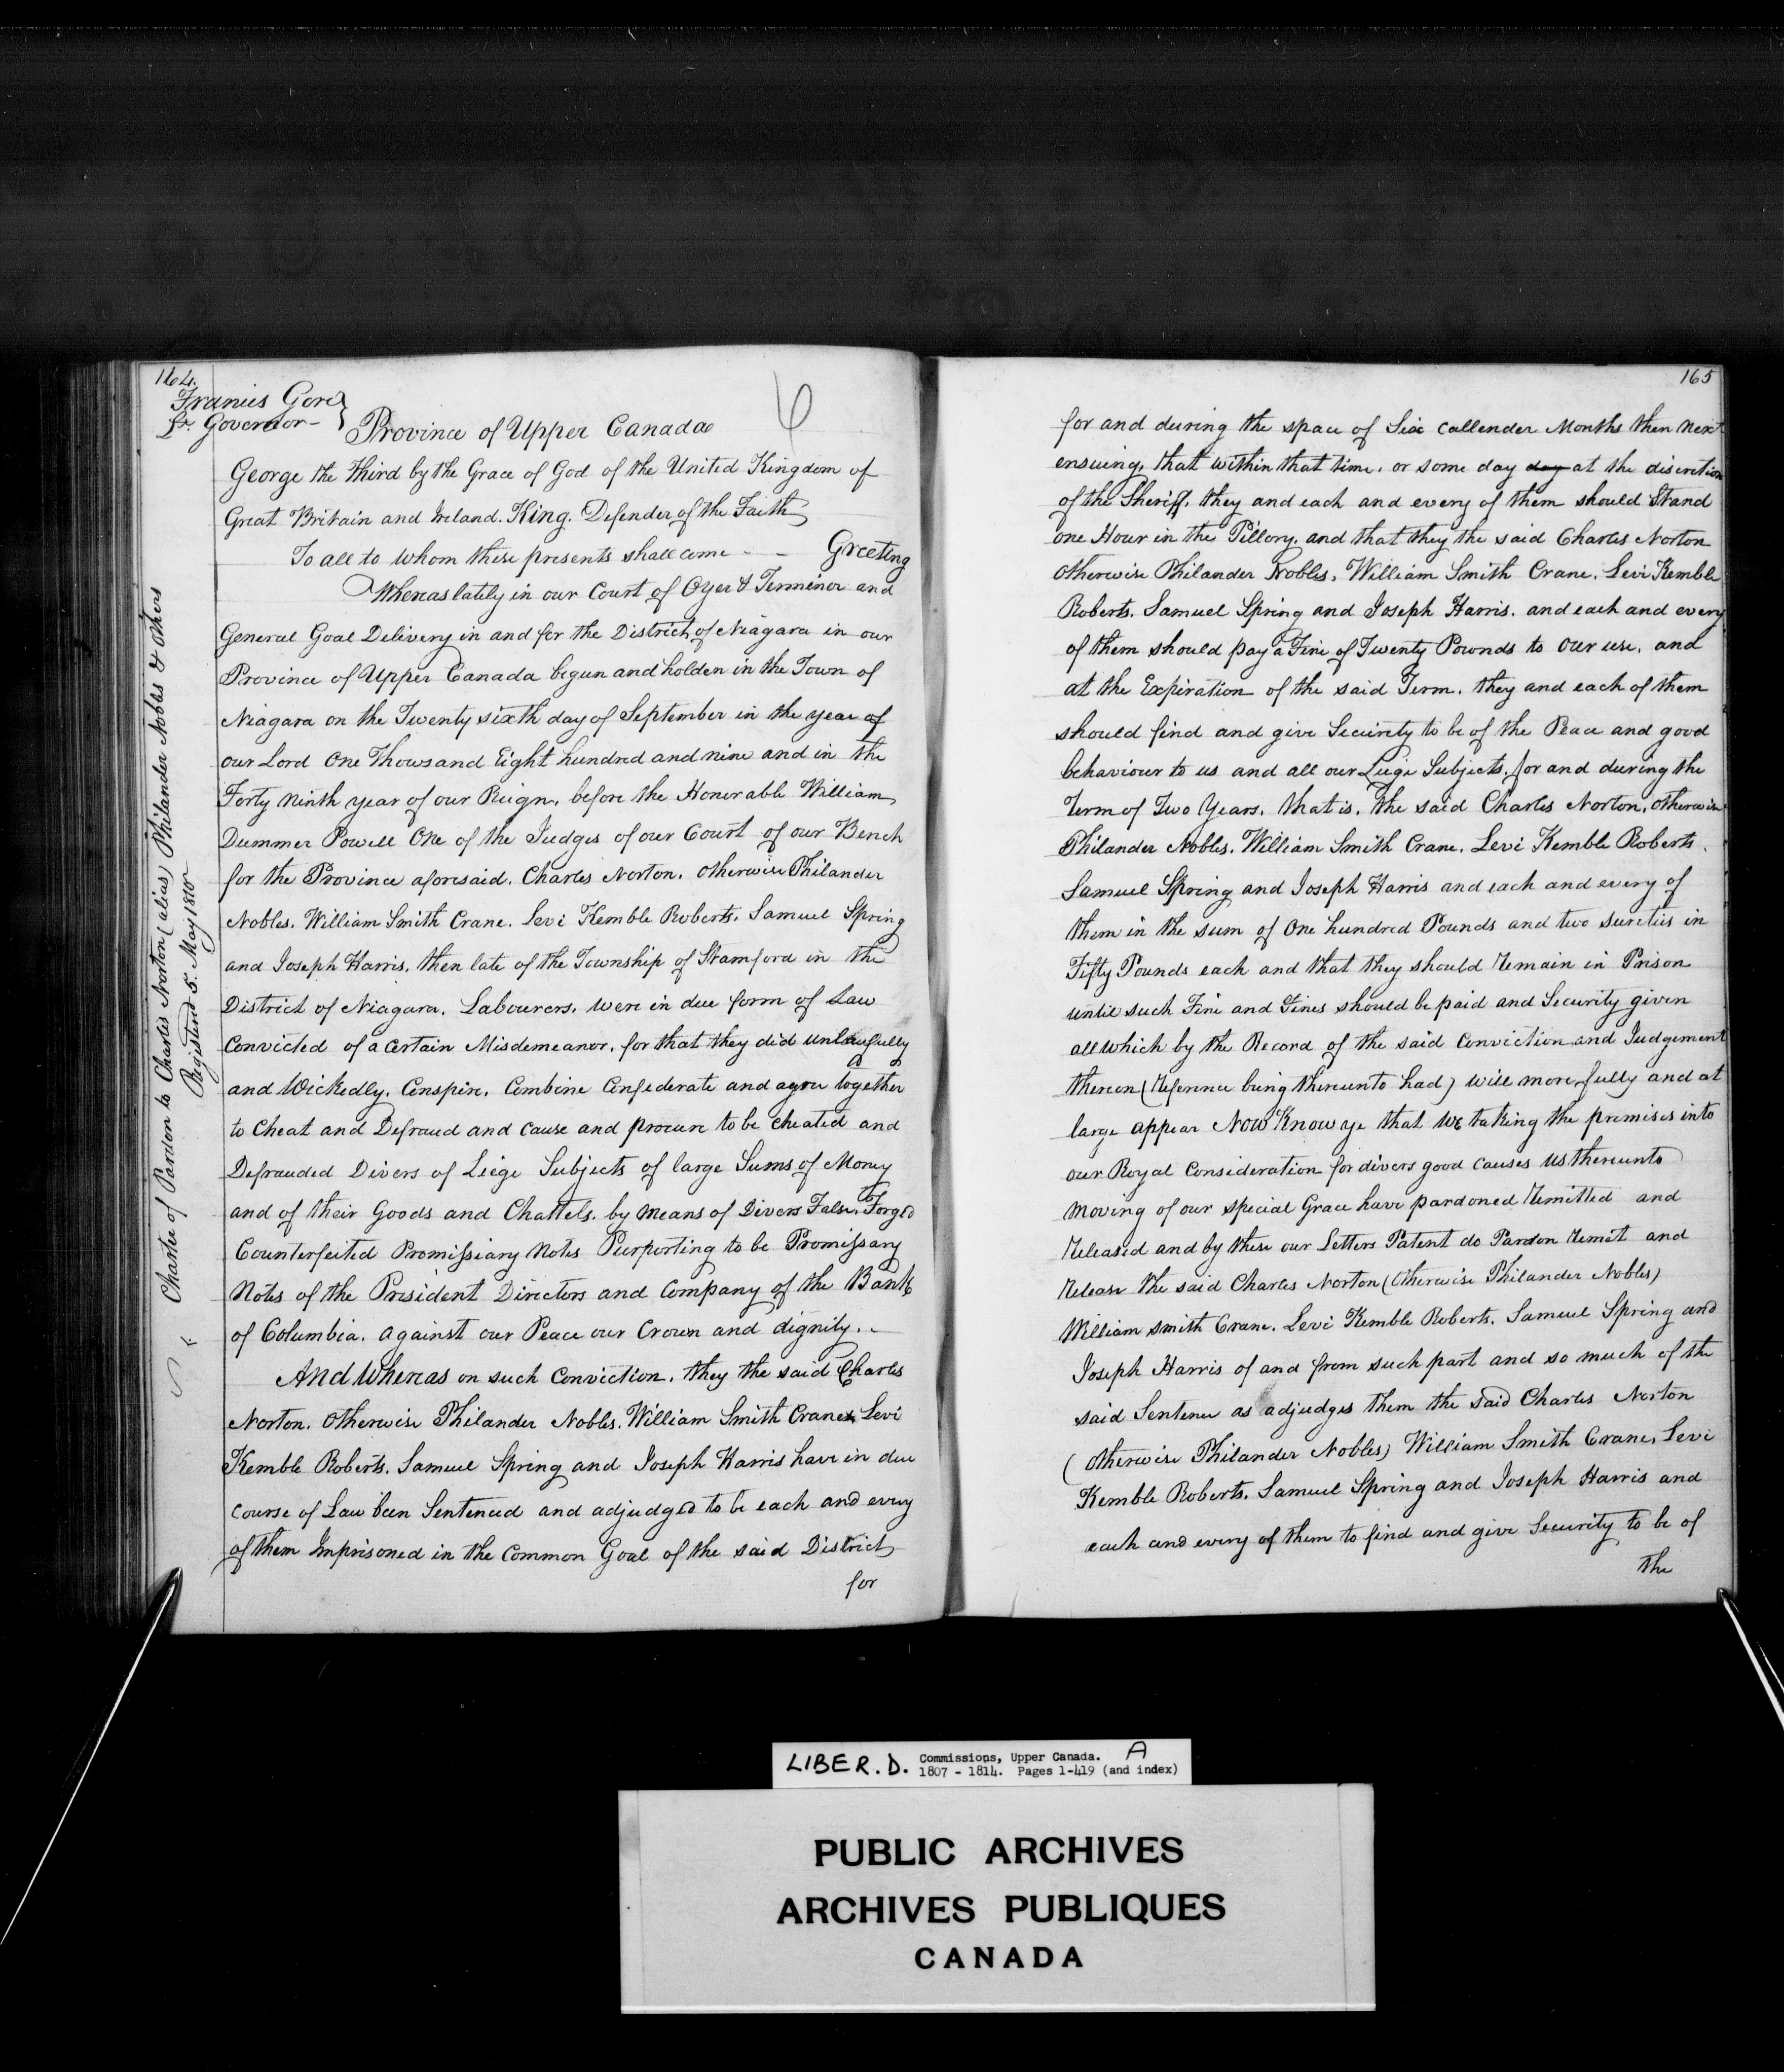 164.
Francis Gore
Lt. Governor -
Province of Upper Canada
George the Third by the Grace of God of the United Kingdom of
Great Britain and Ireland. King. Defender of the Faith
To all to whom these presents shall come - - Greeting
Whereas lately in our Court of Oyer & Terminor and
General Goal Delivery in and for the District of Niagara in our
Province of Upper Canada begun and holden in the Town of
Niagara on the Twenty sixth day of September in the year of
our Lord One Thousand Eight hundred and nine and in the
Forty ninth year of our Reign, before the Honorable William
Dummer Powell One of the Judges of our Court of our Bench
for the Province aforesaid. Charles Norton. otherwise Philander
Nobles. William Smith Crane. Levi Kemble Roberts. Samuel Spring
and Joseph Harris, then late of the Township of Stamford in the
District of Niagara. Labourers. were in due form of Law
Convicted of a Certain Misdemeanor, for that they did unlawfully
and Wickedly. Conspire. Combine Confederate and agree together
to Cheat and Defraud and Cause and procure to be cheated and
Defrauded Divers of Liege Subjects of large Sums of Money
and of their Goods and Chattels. by means of Divers False, Forged
Counterfeited Promissiary Notes Purporting to be Promissary
Notes of the President Directors and Company of the Bank
of Columbia. against our Peace our Crown and dignity. -
And Whereas on such Conviction. they the said Charles
Norton. Otherwise Philander Nobles. William Smith Crane Levi
Kemble Roberts. Samuel Spring and Joseph Harris have in due
course of Law been Sentenced and adjudged to be each and every
of them Imprisoned in the Common Goal of the said District
for
Charter of Pardon to Charles Norton (alias) Philander Nobles & Others
Registered 5. May 1810
165
for and during the space of Six callender Months then next
ensuing, that within that time, or some day day at the discretion
of the Sheriff, they and each and every of them should Stand
one Hour in the Pillory. and that they the said Charles Norton
otherwise Philander Nobles, William Smith Crane. Levi Kemble
Roberts. Samuel Spring and Joseph Harris. and each and every
of them should pay a Fine of Twenty Pounds to our use, and
at the Expiration of the said Term. they and each of them
should find and give Security to be of the Peace and good
behaviour to us and all our Leige Subjects. for and during the
Term of Two Years. that is. the said Charles Norton, otherwise
Philander Nobles. William Smith Crane. Levi Kemble Roberts.
Samuel Spring and Joseph Harris and each and every of
them in the sum of One hundred Pounds and two sureties in
Fifty Pounds each and that they should remain in Prison
until such Fine and Fines should be paid and Security given
all which by the Record of the said Conviction and Judgement
thereon (reference being thereunto had) will more fully and at
large appear Now Know ye that We taking the premises into
our Royal Consideration for divers good causes us thereunto
moving of our special Grace have pardoned remitted and
released and by these our Letters Patent do Pardon remit and
release the said Charles Norton (Otherwise Philander Nobles)
William smith Crane. Levi Kemble Roberts. Samuel Spring and
Joseph Harris of and from such part and so much of the
said Sentence as adjudges them the said Charles Norton
(otherwise Philander Nobles) William Smith Crane, Levi
Kemble Roberts. Samuel Spring and Joseph Harris and
each and every of them to find and give Security to be of
the
LIBER.D. Commissions, Upper Canada. A
1807 - 1814. Pages 1-419 (and index)
PUBLIC ARCHIVES
ARCHIVES PUBLIQUES
CANADA